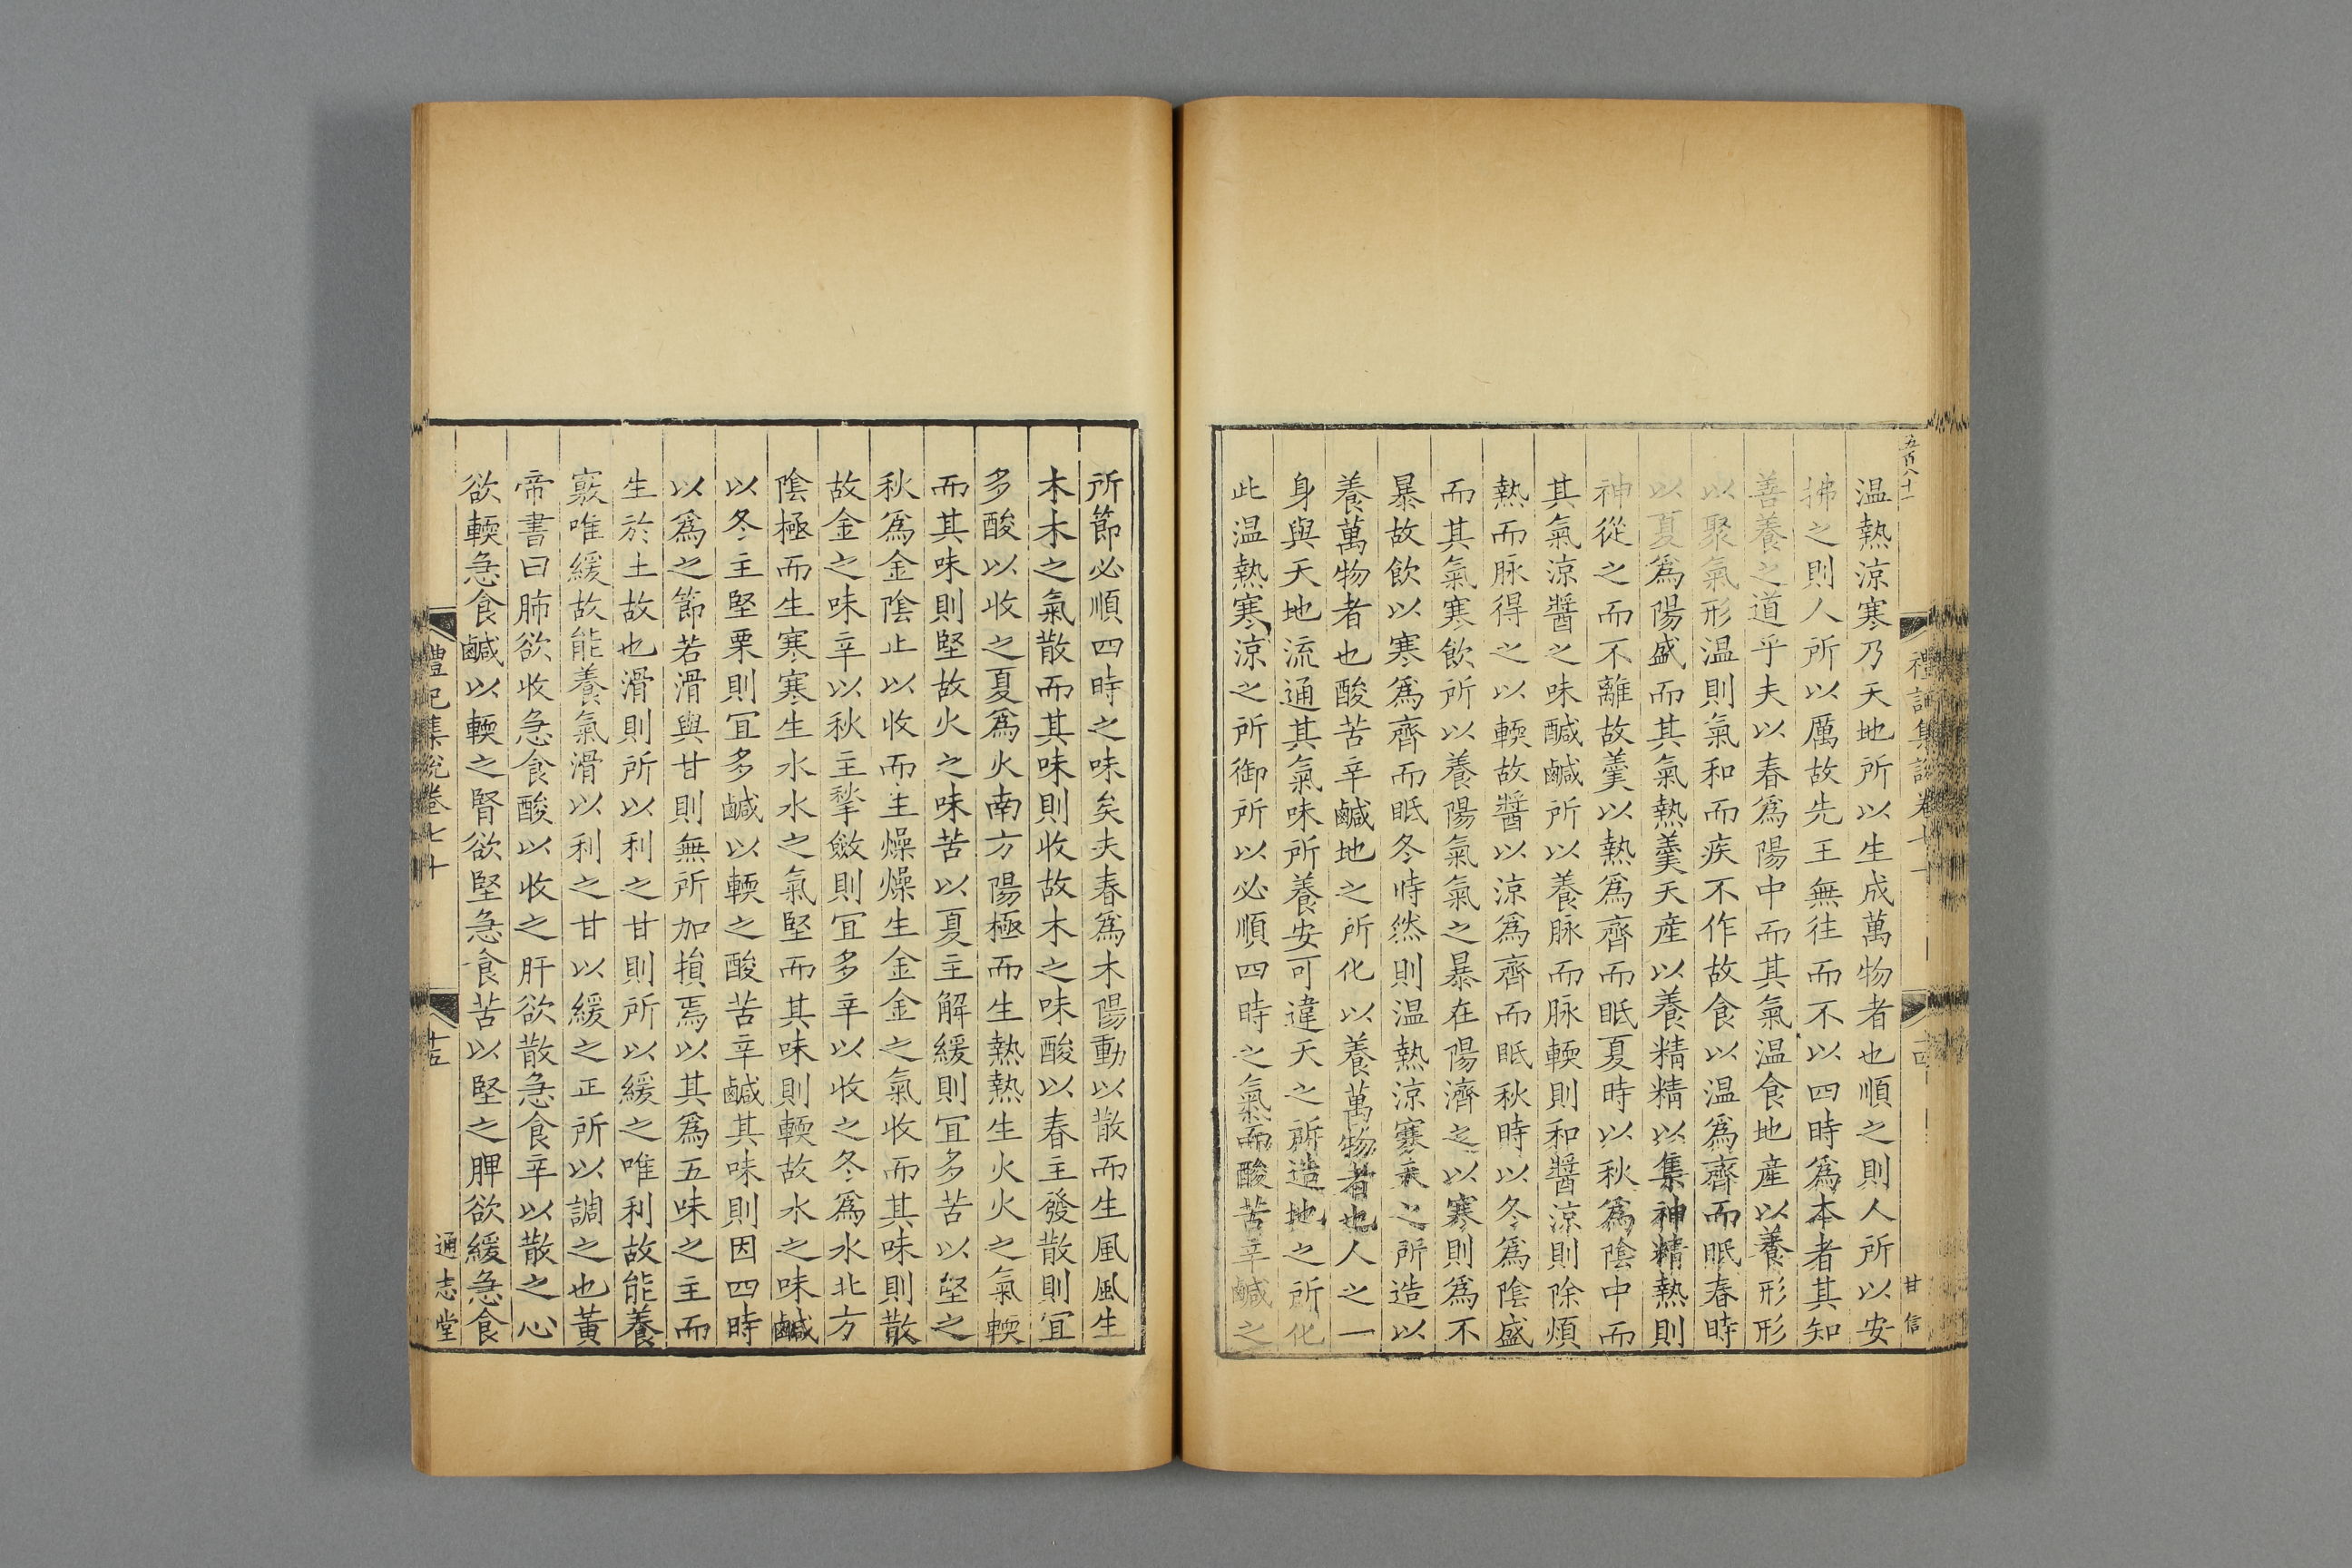 五百八十一
禮記集說卷七十
十四
甘信
温熱涼寒乃天地所以生成萬物者也順之則人所以安
拂之則人所以厲故先王無往而不以四時為本者其知
善養之道乎夫以春為陽中而其氣温食地産以養形形
以聚氣形温則氣和而疾不作故食以温為齊而眂春時
以夏為陽盛而其氣熱羹天産以養精精以集神精熱則
神從之而不離故羮以熱為齊而眂夏時以秋為陰中而
其氣涼醬之味醎鹹所以養脉而脉輭則和醬涼則除煩
熱而脉得之以輭故醬以涼為齊而眂秋時以冬為陰盛
而其氣寒飲所以養陽氣氣之暴在陽濟之以寒則為不
暴故飲以寒為齊而眂冬時然則温熱涼寒天之所造以
養萬物者也酸苦辛鹹地之所化以養萬物者也人之一
身與天地流通其氣味所養安可違天之所造地之所化
此温熱寒涼之所御所以必順四時之氣而酸苦辛鹹之
所節必順四時之味矣夫春為木陽動以散而生風風生
木木之氣散而其味則收故木之味酸以春主發散則宜
多酸以收之夏為火南方陽極而生熱熱生火火之氣輭
而其味則堅故火之味苦以夏主解緩則宜多苦以堅之
秋為金陰止以收而生燥燥生金金之氣收而其味則散
故金之味辛以秋主揫斂則宜多辛以收之冬為水北方
陰極而生寒寒生水水之氣堅而其味則輭故水之味鹹
以冬主堅栗則宜多鹹以輭之酸苦辛鹹其味則因四時
以為之節若滑與甘則無所加損焉以其為五味之主而
生於土故也滑則所以利之甘則所以緩之唯利故能養
竅唯緩故能養氣滑以利之甘以緩之正所以調之也黃
帝書曰肺欲收急食酸以收之肝欲散急食辛以散之心
欲輭急食鹹以輭之腎欲堅急食苦以堅之脾欲緩急食
禮記集說卷七十
十五
通志堂